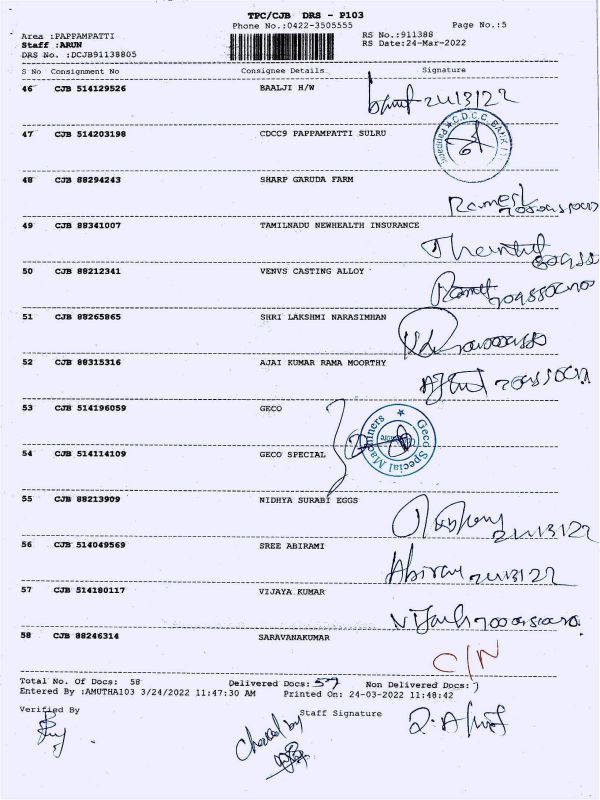 TPC/CJB DRS - P103
Phone No.:0422-3505555
Page No.:5
Area :PAPPAMPATTI
RS No.:911388
Staff :ARUN
RS Date:24-Mar-2022
DRS No. :DCJB91138805
S No Consignment No Consignee Details Signature
46 CJB 514129526 BAALJI H/W 24/3/22
47 CJB 514203198 CDCC9 PAPPAMPATTI SULRU
C.D.C.C. BANK
48 CJB 88294243 SHARP GARUDA FARM
Ramesh
49 CJB 88341007 TAMILNADU NEWHEALTH INSURANCE
50 CJB 88212341 VENVS CASTING ALLOY
51 CJB 88265865 SHRI LAKSHMI NARASIMHAN
52 CJB 88315316 AJAI KUMAR RAMA MOORTHY
53 CJB 514196059 GECO
Geco Special Machiners
54 CJB 514114109 GECO SPECIAL
55 CJB 88213909 NIDHYA SURABI EGGS
24/3/22
56 CJB 514049569 SREE ABIRAMI
Abiray 24/3/22
57 CJB 514180117 VIJAYA KUMAR
58 CJB 88246314 SARAVANAKUMAR
C/N
Total No. Of Docs: 58 Delivered Docs: 57 Non Delivered Docs: 1
Entered By :AMUTHA103 3/24/2022 11:47:30 AM Printed On: 24-03-2022 11:48:42
Verified By Staff Signature